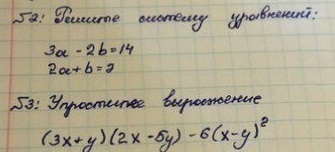 №2: Решите систему уравнений:
3a - 2b = 14
2a + b = 2
№3: Упростите выражение
(3x + y)(2x - 5y) - 6(x - y)²